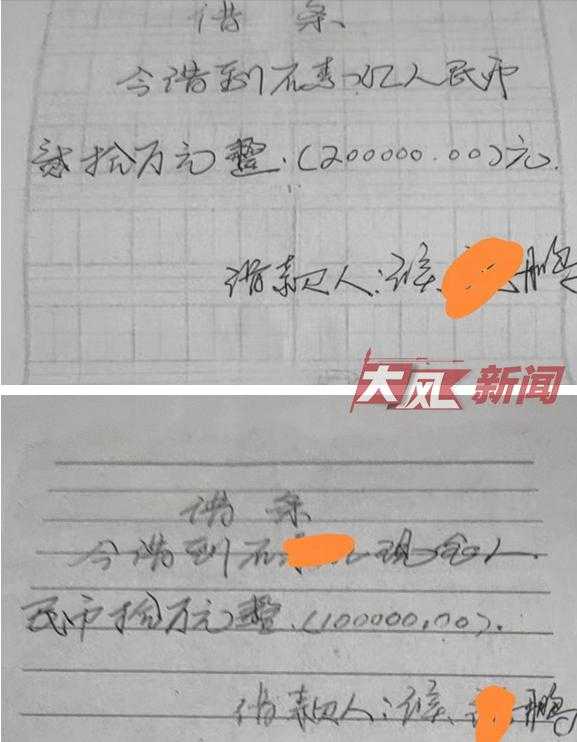 借 条
今借到石秀 人民币
贰拾万元整.(200000.00)元.
借款人:
大风新闻
借 条
今借到石 现金人
民币拾万元整.(100000.00).
借款人: